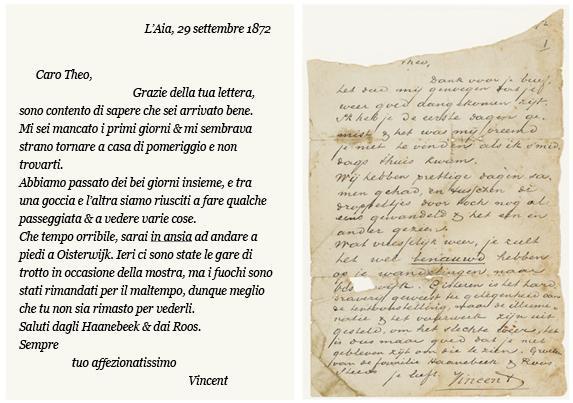 L'Aia, 29 settembre 1872
Caro Theo,
Grazie della tua lettera,
sono contento di sapere che sei arrivato bene.
Mi sei mancato i primi giorni & mi sembrava
strano tornare a casa di pomeriggio e non
trovarti.
Abbiamo passato dei bei giorni insieme, e tra
una goccia e l'altra siamo riusciti a fare qualche
passeggiata & a vedere varie cose.
Che tempo orribile, sarai in ansia ad andare a
piedi a Oisterwijk. Ieri ci sono state le gare di
trotto in occasione della mostra, ma i fuochi sono
stati rimandati per il maltempo, dunque meglio
che tu non sia rimasto per vederli.
Saluti dagli Haanebeek & dai Roos.
Sempre
tuo affezionatissimo
Vincent
1
Theo,
Dank voor je brief,
het deed mij genoegen dat je
weer goed aangekomen zijt.
Ik heb je de eerste dagen ge-
mist & het was mij vreemd
je niet te vinden als ik s'mid-
dags t'huis kwam.
Wij hebben prettige dagen sa-
men gehad, en tusschen de
droppeltjes door toch nog al
eens gewandeld & het een en
ander gezien.
Wat vreesselijk weer, je zult
het wel benauwd hebben
op je wandelingen naar
Gisteren is het hard-
draverij geweest ter gelegenheid van
de tentoonstelling, maar de illumi-
natie & het vuurwerk zijn uit-
gesteld, om het slechte weer, het
is dus maar goed dat je niet
gebleven zijt om die te zien. Groeten
van de familie Haanebeek & Roos
Steeds
je liefh.
Vincent